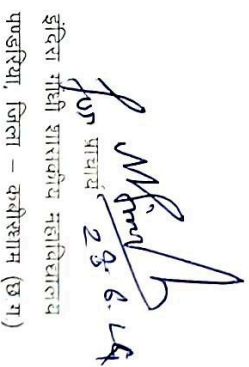 28.6.19
for प्राचार्य
इंदिरा गाँधी शासकीय महाविद्यालय
पण्डरिया, जिला – कबीरधाम (छ.ग.)